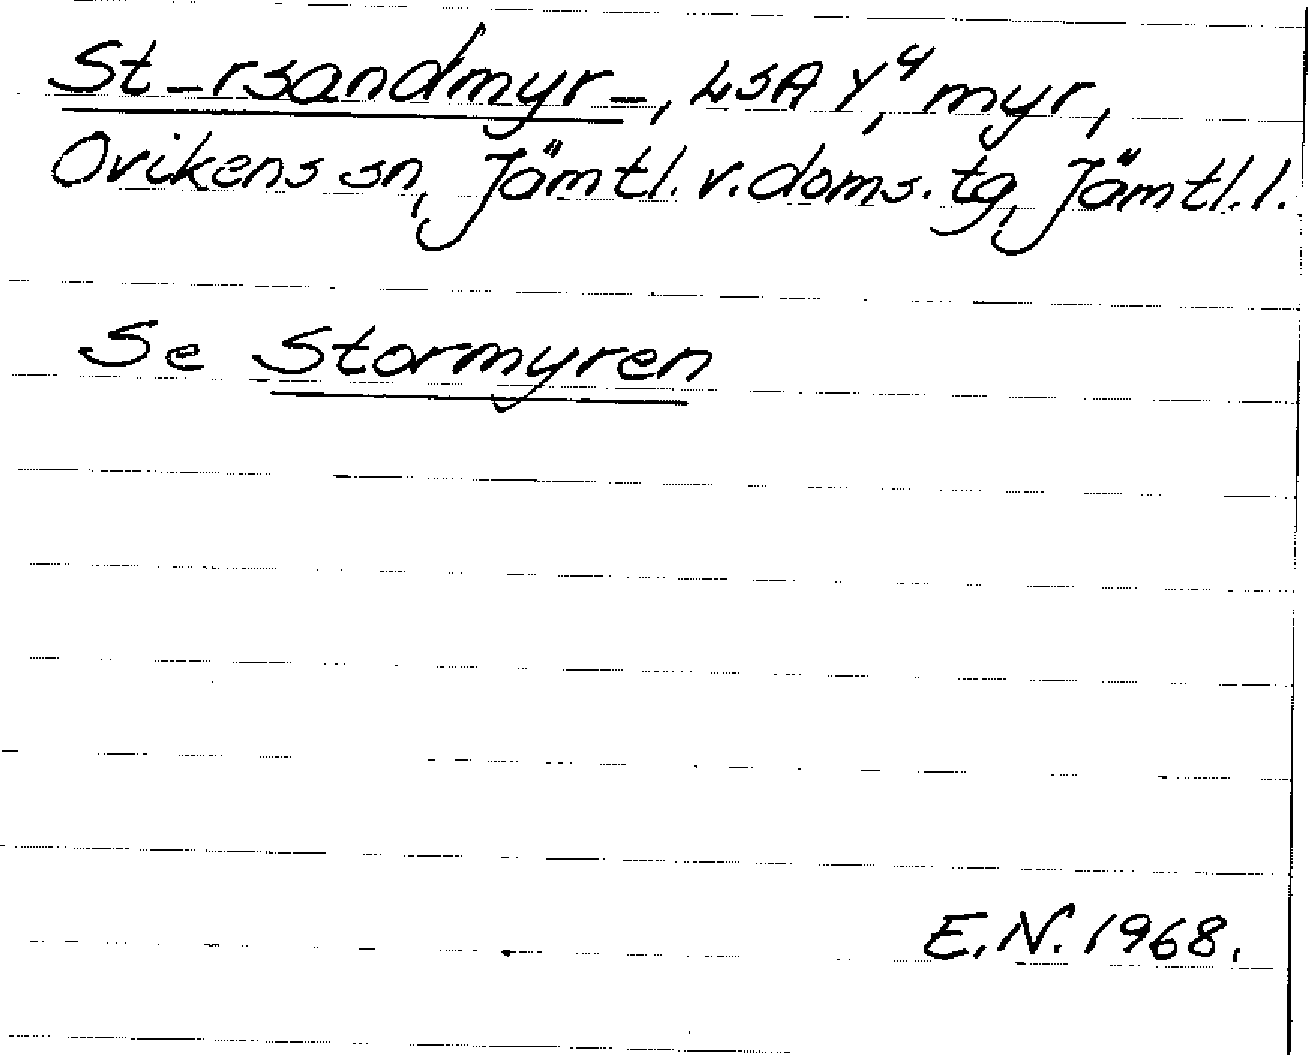 St_rsandmyr_, LSA Y⁴, myr,
Ovikens sn, Jämtl. v. doms. tg, Jämtl. l.
Se Stormyren
E.N. 1968.